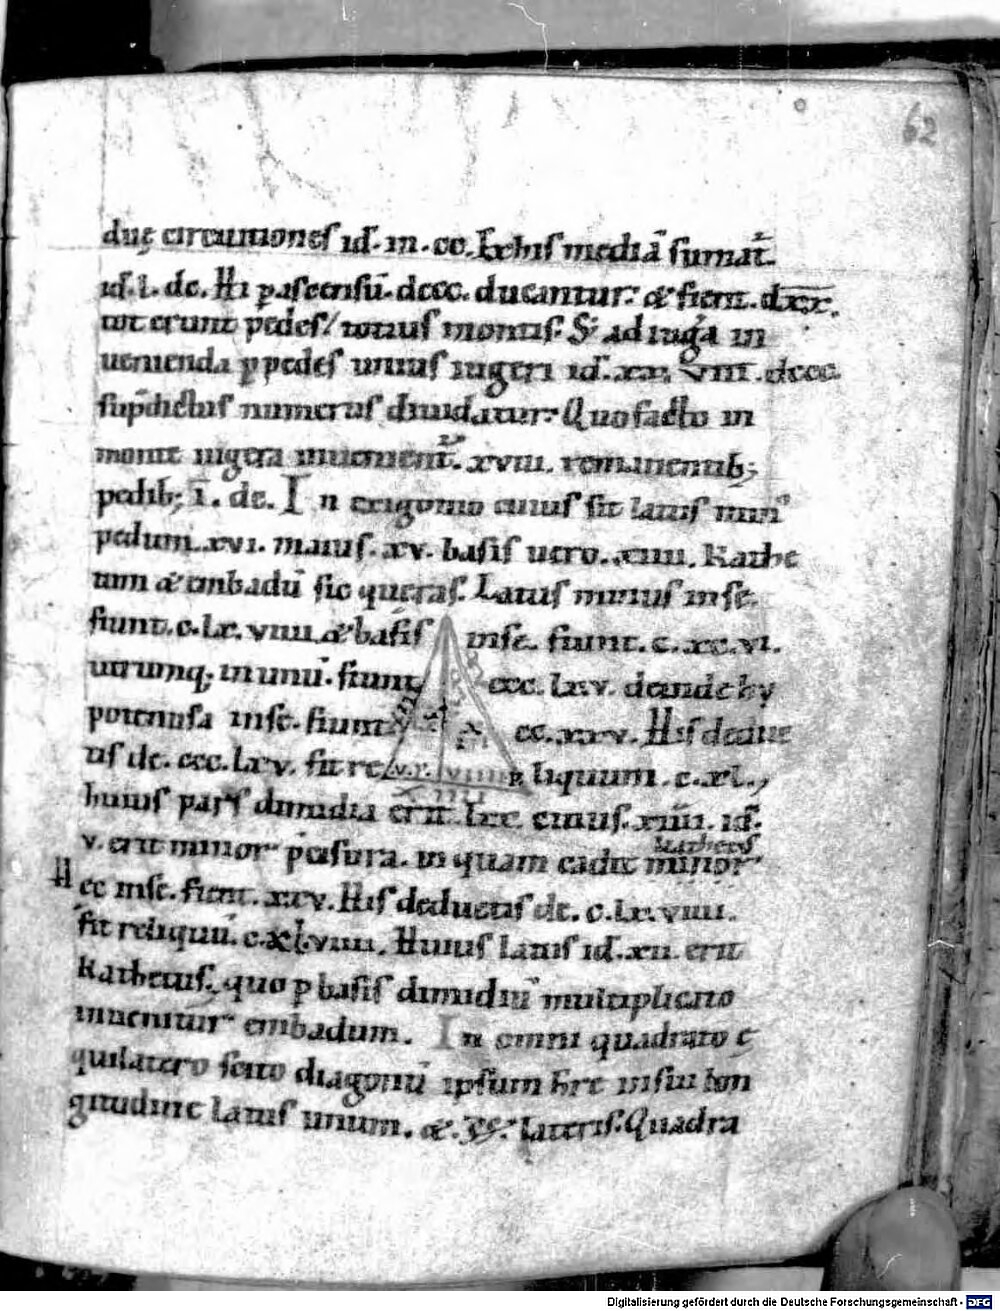 62
duę circuitiones id ÷ iii. cc. Ex his media̅ sumat̃
id ÷ i. dc. Hi p ascensu̅. dccc. ducantur. & fient. dxx.
tot erunt pedes totius montis. Sꝫ ad iugera in
uenienda p pedes unius iugeri id ÷ xx. viii. dccc.
sup̅dictus numerus diuidatur. Quo facto in
monte iugera inuenient̃. xviii. remanentib;
pedib; i̅. dc. In trigonio cuius sit latus min̅
pedum. xvi. maius. xv. basis uero. xiiii. Kathe
tum & embadu̅ sic quęras. Latus minus in se.
fiunt. c. lx. viiii. & basis in se. fiunt. c. xc. vi.
utrunq; in unu̅. fiunt ccc. lxv. deinde hy
potenusa in se. fiunt cc. xxv. His deduc
tis de. ccc. lxv. fit re liquum. c. xl.
huius pars dimidia erit. lxx. cuius. xiiii. id ÷
v. erit minor pcisura. in quam cadit minor
kathetus
Hęc in se. fient. xxv. His deductis de. c. lx. viiii.
fit reliquu̅. c. xl. iiii. Huius latus id ÷ xii. erit
Kathetus. quo p basis dimidiu̅ multiplicato
inuenitur embadum. In omni quadrato ę
quilatero scito diagonu̅ ipsum h̅re in sui lon
gitudine latus unum. & lateris. Quadra
Digitalisierung gefördert durch die Deutsche Forschungsgemeinschaft - DFG